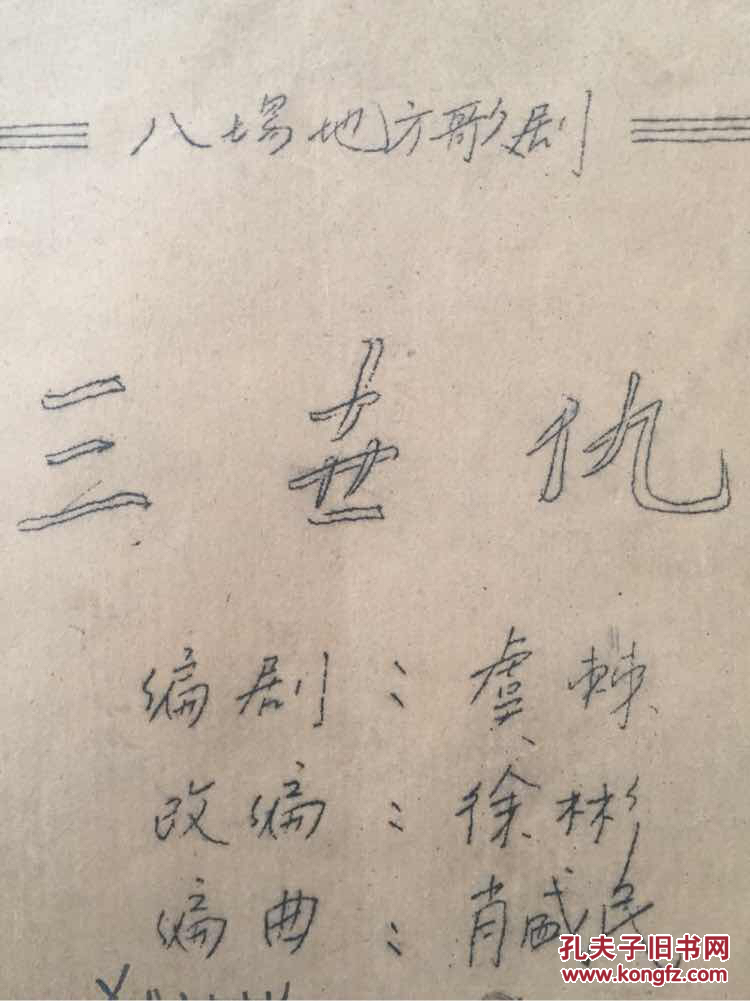 八场地方歌剧
三世仇
编剧：虞棘
改编：徐彬
编曲：肖民
孔夫子旧书网
www.kongfz.com